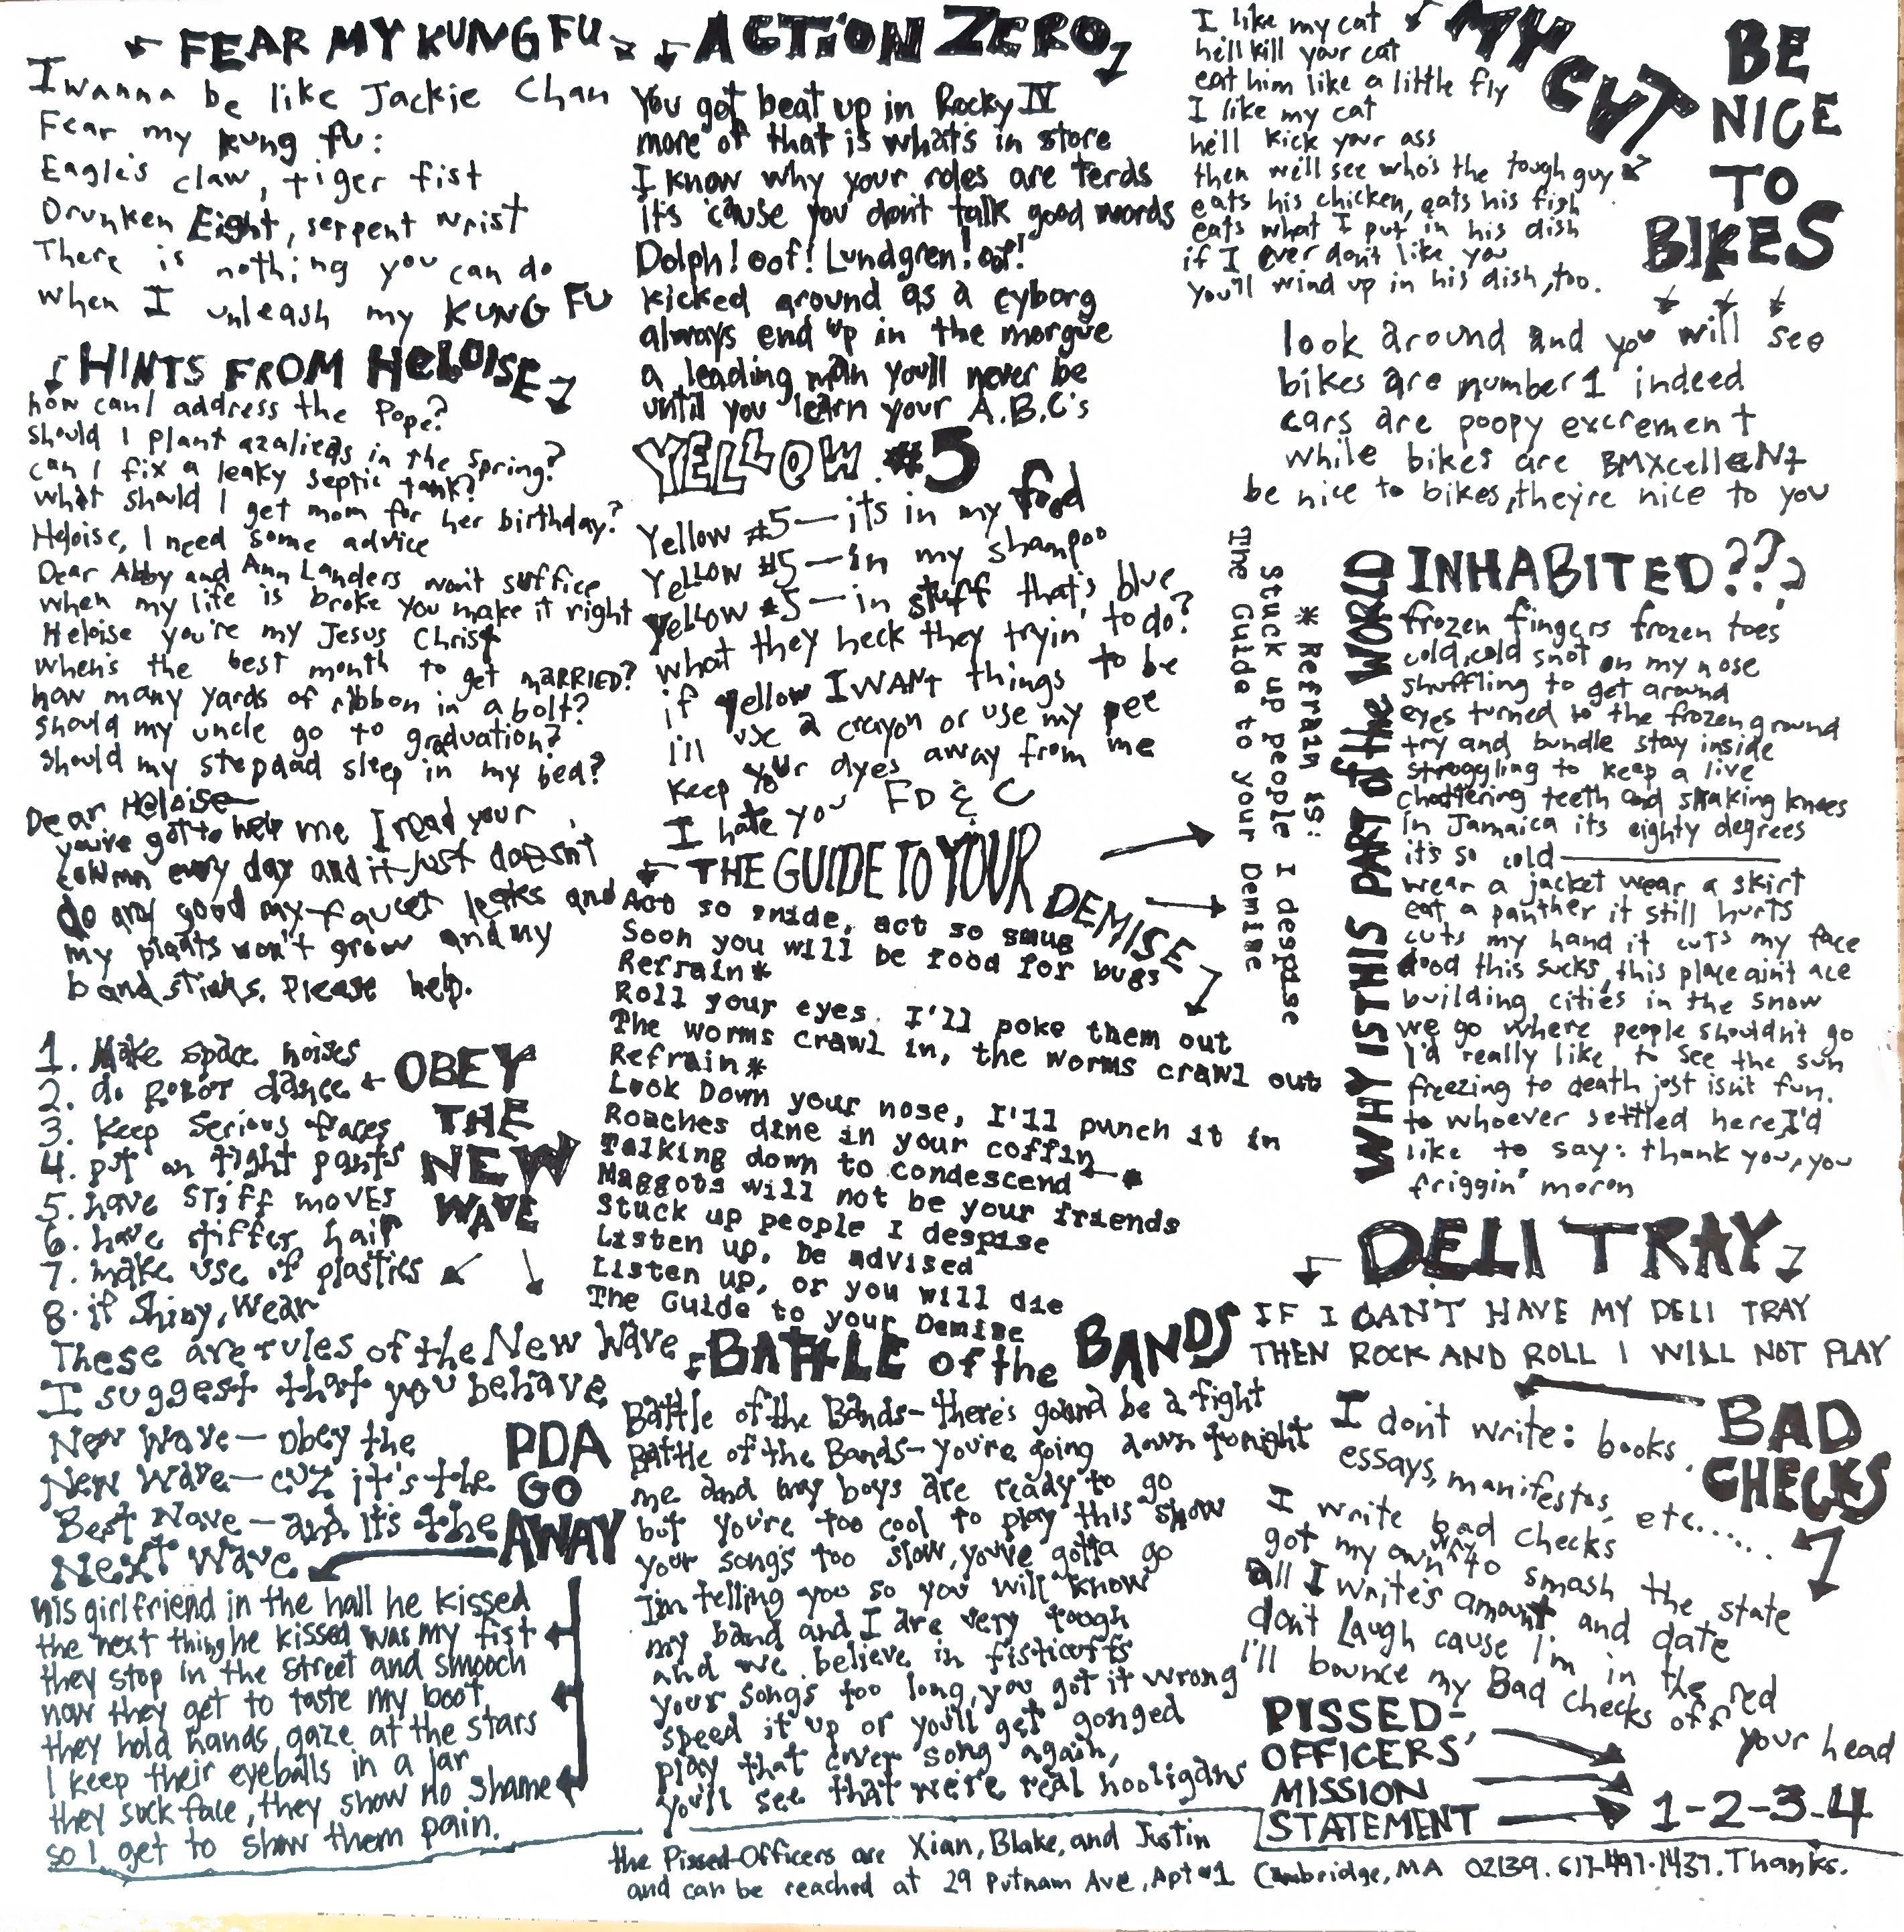 FEAR MY KUNG FU
I wanna be like Jackie Chan
Fear my kung fu:
Eagle's claw, tiger fist
Drunken Eight, serpent wrist
There is nothing you can do
when I unleash my KUNG FU
HINTS FROM HELOISE
how can I address the Pope?
should I plant azalieas in the spring?
can I fix a leaky septic tank?
what should I get mom for her birthday?
Heloise, I need some advice
Dear Abby and Ann Landers won't suffice
when my life is broke you make it right
Heloise you're my Jesus Christ
when's the best month to get MARRIED?
how many yards of ribbon in a bolt?
should my uncle go to graduation?
should my stepdad sleep in my bed?
Dear Heloise—
you've got to help me I read your
column every day and it just doesn't
do any good my faucet leaks and
my plants won't grow and my
band stinks. Please help.
OBEY
THE
NEW
WAVE
1. Make space noises
2. do ROBOT dance
3. keep serious faces
4. put on tight pants
5. have stiff moves
6. have stiffer hair
7. make use of plastics
8. if shiny, wear
These are rules of the New Wave
I suggest that you behave
New Wave—obey the
New Wave—cuz it's the
Best Wave—and it's the
Next Wave
PDA
GO
AWAY
his girlfriend in the hall he kissed
the next thing he kissed was my fist
they stop in the street and smooch
now they get to taste my boot
they hold hands, gaze at the stars
I keep their eyeballs in a jar
they suck face, they show no shame
so I get to show them pain.
ACTION ZERO
You got beat up in Rocky IV
more of that is what's in store
I know why your roles are terds
it's 'cause you don't talk good words
Dolph! oof! Lundgren! oof!
kicked around as a cyborg
always end up in the morgue
a leading man you'll never be
until you learn your A.B.C's
YELLOW #5
Yellow #5—its in my food
Yellow #5—in my shampoo
Yellow #5—in stuff that's blue
what they heck they tryin' to do?
if yellow I WANT things to be
I'll use a crayon or use my pee
keep your dyes away from me
I hate you FD & C
THE GUIDE TO YOUR DEMISE
Act so snide, act so smug
Soon you will be food for bugs
Refrain*
Roll your eyes, I'll poke them out
The worms crawl in, the worms crawl out
Refrain*
Look Down your nose, I'll punch it in
Roaches dine in your coffin
Talking down to condescend *
Maggots will not be your friends
Stuck up people I despise
Listen up, be advised
Listen up, or you will die
The Guide to your Demise
* Refrain is:
Stuck up people I despise
The Guide to your Demise
BATTLE of the BANDS
Battle of the Bands—there's gonna be a fight
Battle of the Bands—you're going down tonight
me and my boys are ready to go
but you're too cool to play this show
your song's too slow, you've gotta go
I'm telling you so you will know
my band and I are very tough
and we believe in fisticuffs
your songs too long, you got it wrong
speed it up or you'll get gonged
play that cover song again,
you'll see that we're real hooligans
MY CAT
I like my cat
he'll kill your cat
eat him like a little fly
I like my cat
he'll kick your ass
then we'll see who's the tough guy
eats his chicken, eats his fish
eats what I put in his dish
if I ever don't like you
you'll wind up in his dish, too.
BE
NICE
TO
BIKES
look around and you will see
bikes are number 1 indeed
cars are poopy excrement
while bikes are BMXcelleNt
be nice to bikes, they're nice to you
WHY IS THIS PART of the WORLD
INHABITED???
frozen fingers frozen toes
cold, cold snot on my nose
shuffling to get around
eyes turned to the frozen ground
try and bundle stay inside
struggling to keep a live
chattering teeth and shaking knees
In Jamaica its eighty degrees
it's so cold
wear a jacket wear a skirt
eat a panther it still hurts
cuts my hand it cuts my face
dood this sucks, this place ain't ace
building cities in the snow
we go where people shouldn't go
I'd really like to see the sun
freezing to death just isn't fun.
to whoever settled here, I'd
like to say: thank you, you
friggin' moron
DELI TRAY
IF I CAN'T HAVE MY DELI TRAY
THEN ROCK AND ROLL I WILL NOT PLAY
BAD
CHECKS
I don't write: books,
essays, manifestos, etc.....
I write bad checks
got my own way to smash the state
all I write's amount and date
don't laugh cause I'm in the red
I'll bounce my Bad checks off your head
PISSED-
OFFICERS'
MISSION
STATEMENT
1-2-3-4
the Pissed-Officers are Xian, Blake, and Justin
and can be reached at 29 Putnam Ave, Apt #1 Cambridge, MA 02139. 617-491-1437. Thanks.